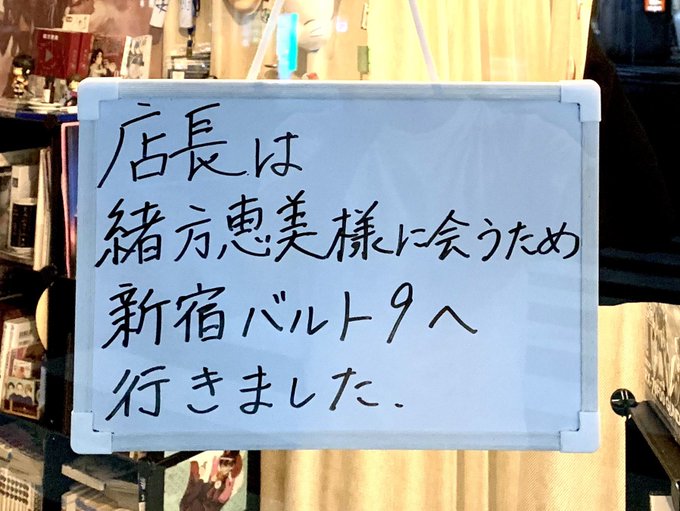 店長は
緒方恵美様に会うため
新宿バルト9へ
行きました.